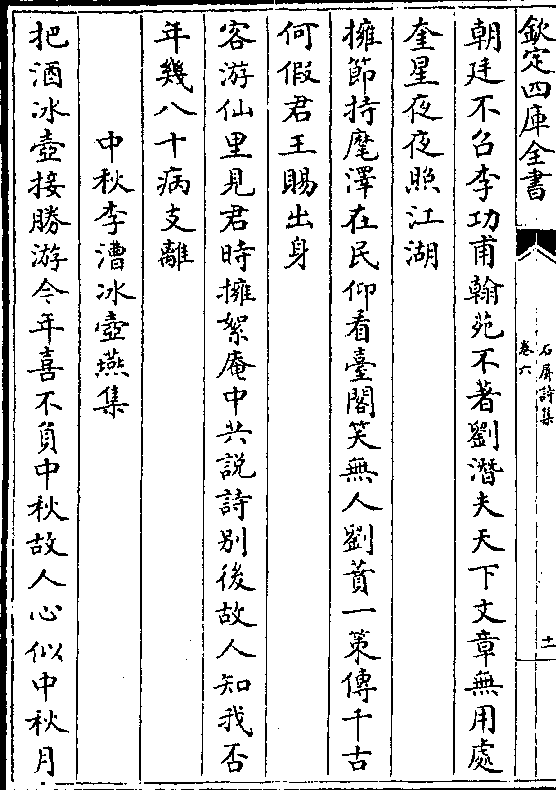 欽定四庫全書
石屏詩集
卷六
十一
朝廷不召李功甫翰苑不著劉潛夫天下文章無用處
奎星夜夜照江湖
擁節持麾澤在民仰看臺閣笑無人劉蕡一策傳千古
何假君王賜出身
客游仙里見君時擁絮庵中共說詩别後故人知我否
年幾八十病支離
中秋李漕冰壺燕集
把酒冰壺接勝游今年喜不負中秋故人心似中秋月